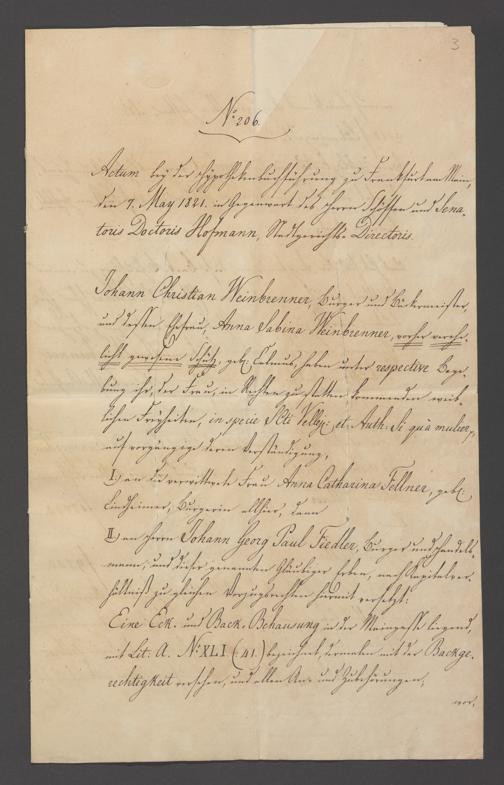 3
No 206.
Actum bey der Hypothekenbuchführung zu Frankfurt am Main,
den 7. May 1821. in Gegenwart des Herrn Schöffen und Sena-
toris Doctoris Hofmann, Stadtgerichts-Directoris.
Johann Christian Weinbrenner, Burger und Beckermeister,
und dessen Ehefrau, Anna Sabina Weinbrenner, vorher vereh-
licht gewesene Schütz, geb: haben unter respective Bege-
bung ihr, der Frau, in Rechten zu statten kommenden weib-
lichen Freyheiten, in specie SCti Vellej: et Auth. Si qua mulier,
auf vorgängige deren Verständigung,
I.) an die verwittwete Frau Anna Catharina Fellner, geb:
Lindheimer, Burgerin allhier, dann
II.) an Herrn Johann Georg Paul Fiedler, Burger und Handels-
mann, und dieser genannten Gläubiger Erben, nach Kapitalver-
hältniß zu gleichen Vorzugsrechten hiermit versetzt:
Eine Eck- und Back-Behausung in der Maingasse liegend,
mit Lit: A. No XLI (41.) bezeichnet, dermalen mit der Backge-
rechtigkeit versehen, und allen An- und Zubehörungen,